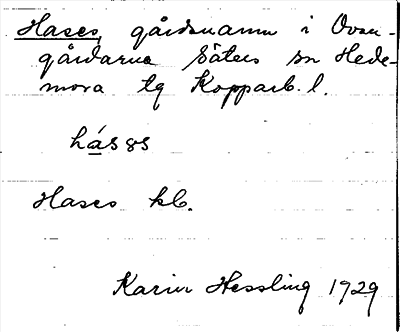 Hases, gårdsnamn i Ovan-
gårdarne Säters sn Hede-
mora tg Kopparb. l.
hás8s
Hases kb.
Karin Hessling 1929